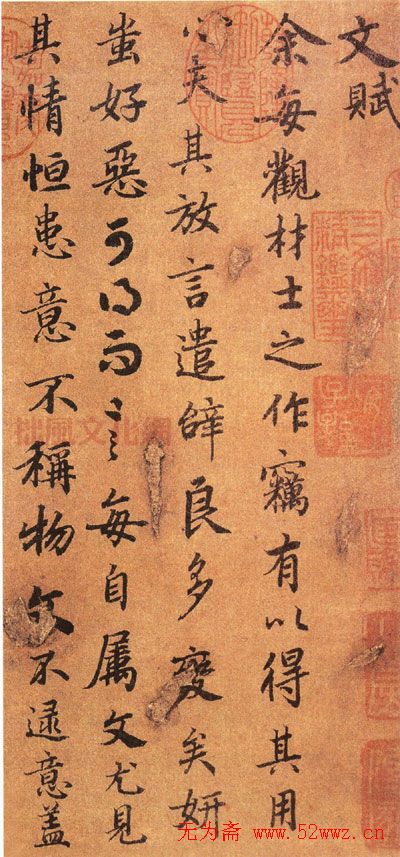 文賦
余每觀材士之作竊有以得其用
心矣其放言遣辭良多變矣妍
蚩好惡可得而言每自屬文尤見
其情恒患意不稱物文不逮意蓋
三希堂精鑑璽
无为斋 www.52wwz.cn